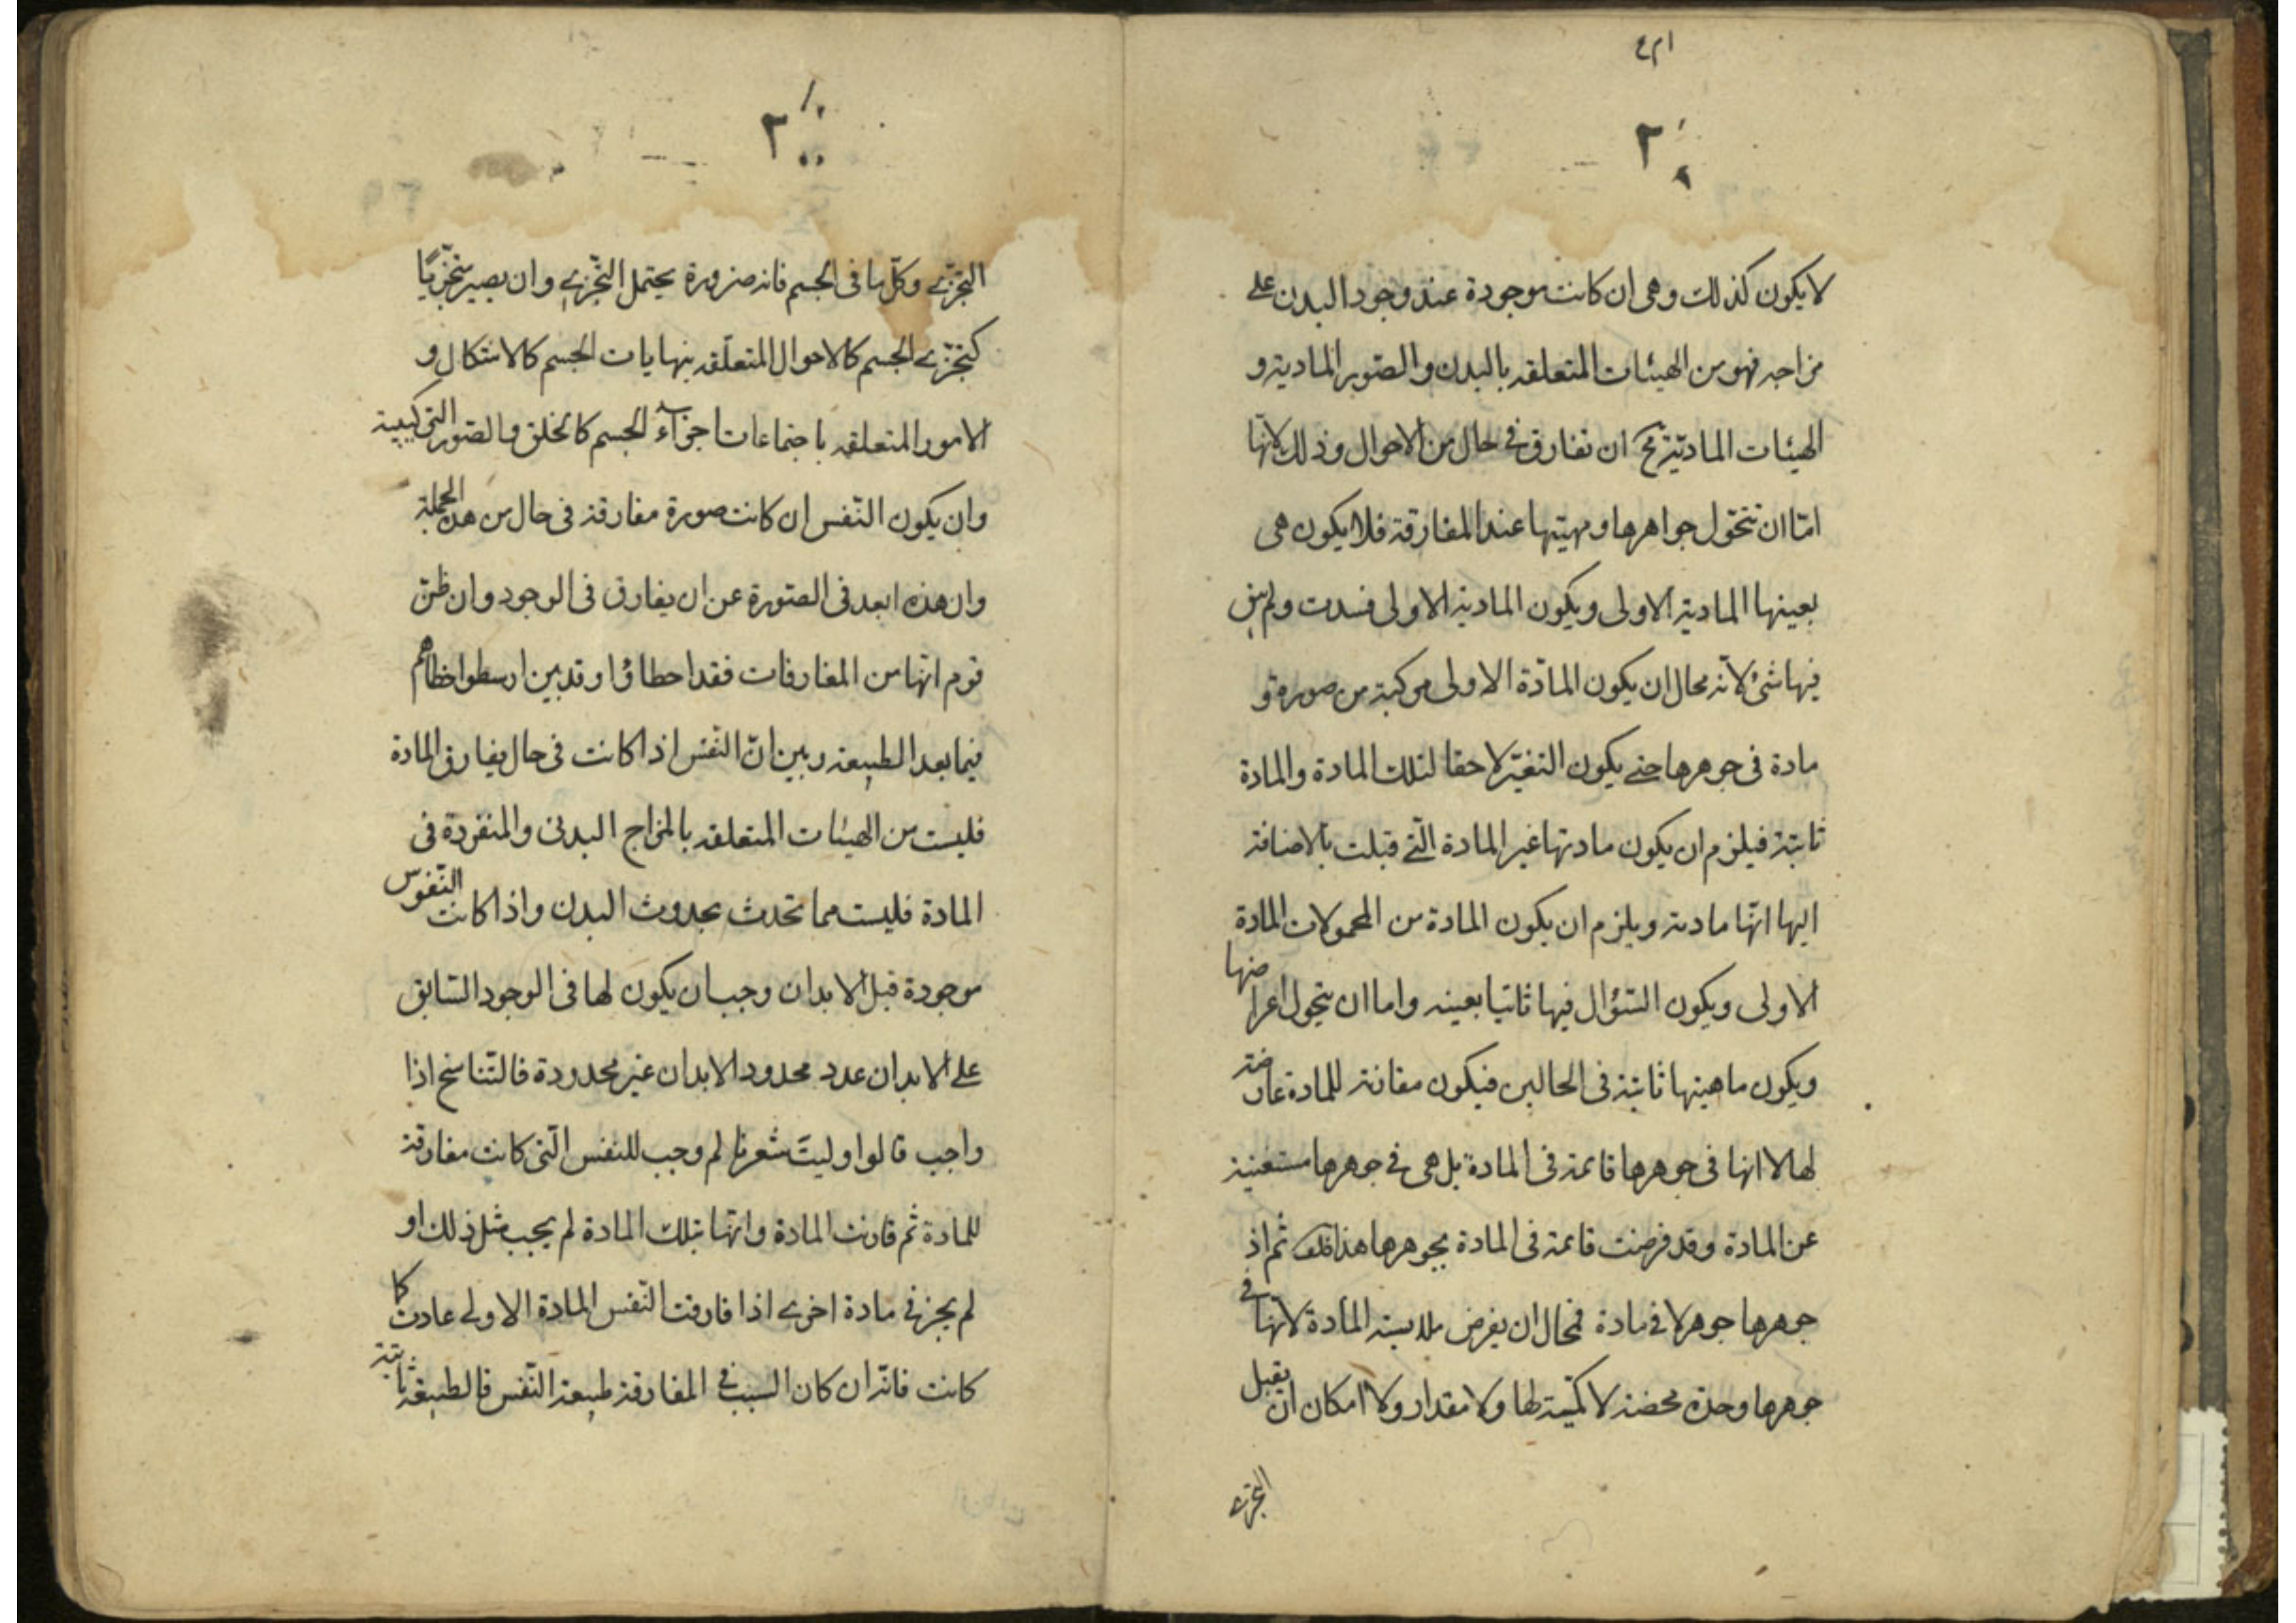 لا يكون كذلك وهى ان كانت موجودة عند وجود البدن على
مزاجه فهو من الهيئات المتعلقه بالبدن والصّور الماديّة و
الهيئات الماديّة مح ان تفارق فى حال من الاحوال وذلك لانّها
امّا ان تتحوّل جواهرها ومهيّتها عند المفارقة فلا يكون هى
بعينها المادية الاولى ويكون المادية الاولى فسدت ولم يبق
فيها شئ لانّه محال ان يكون المادّة الاولى مركبة من صورة و
مادة فى جوهرها حتى يكون التغيّر لاحقا لتلك المادة والمادة
ثابتة فيلزم ان يكون مادتها غير المادة الّتى قبلت بالاضافة
اليها انّها مادية ويلزم ان يكون المادة من المحمولات المادة
الاولى ويكون السّؤال فيها ثانيا بعينه واما ان يتحول اعراضها
ويكون ماهيتها ثابتة فى الحالين فيكون مقانة للمادة عارضة
لها لا انها فى جوهرها قائمة فى المادة بل هى فى جوهرها مستغنية
عن المادة وقد فرضت قائمة فى المادة بجوهرها هذا خلف ثم اذ
جوهرها جوهر لا فى مادة فمحال ان يفرض ملابسة المادة لانّها فى
جوهرها وحدة محضة لا كمّيّة لها ولا مقدار ولا امكان ان يقبل
التجزى
٢
التجزّى وكلّ ما فى الجسم فانه ضرورة يحتمل التّجزى وان يصير متجزّيًا
كتجزّى الجسم كالاحوال المتعلّقه بنهايات الجسم كالاشكال و
الامور المتعلقه باجتماعات اجزاء الجسم كالخلق والصّور التركيبية
وان يكون النّفس ان كانت صورة مفارقة فى حال من هذه الجملة
وان هذه ابعد فى الصّورة عن ان يفارق فى الوجود وان ظنّ
قوم انّها من المفارقات فقد اخطاؤا وقد بين ارسطو اخطاهم
فيما بعد الطبيعة وبين انّ النّفس اذا كانت فى حال يفارق المادة
فليست من الهيئات المتعلقه بالمزاج البدنى والمنفردة فى
المادة فليست مما تحدث بحدوث البدن واذا كانت النّفوس
موجودة قبل الابدان وجب ان يكون لها فى الوجود السّابق
على الابدان عدد محدود الابدان غير محدودة فالتّناسخ اذا
واجب قالوا وليت شعرنا لم وجب للنفس الّتى كانت مفارقة
للمادة ثم قارنت المادة وانّها بتلك المادة لم يجب مثل ذلك او
لم يجز فى مادة اخرى اذا فارقت النّفس المادة الاولى عادت كما
كانت فانّه ان كان السبب فى المفارقة طبيعة النّفس فالطبيعة ثابتة